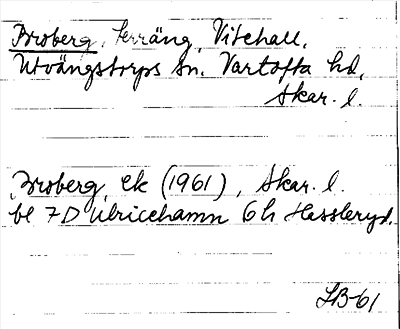 Broberg, terräng, Vitehall,
Utvängstorps sn. Vartofta hd,
Skar. l.
Broberg, ek (1961), Skar. l.
bl 7D Ulricehamn 6h Hassleryd.
SB-61